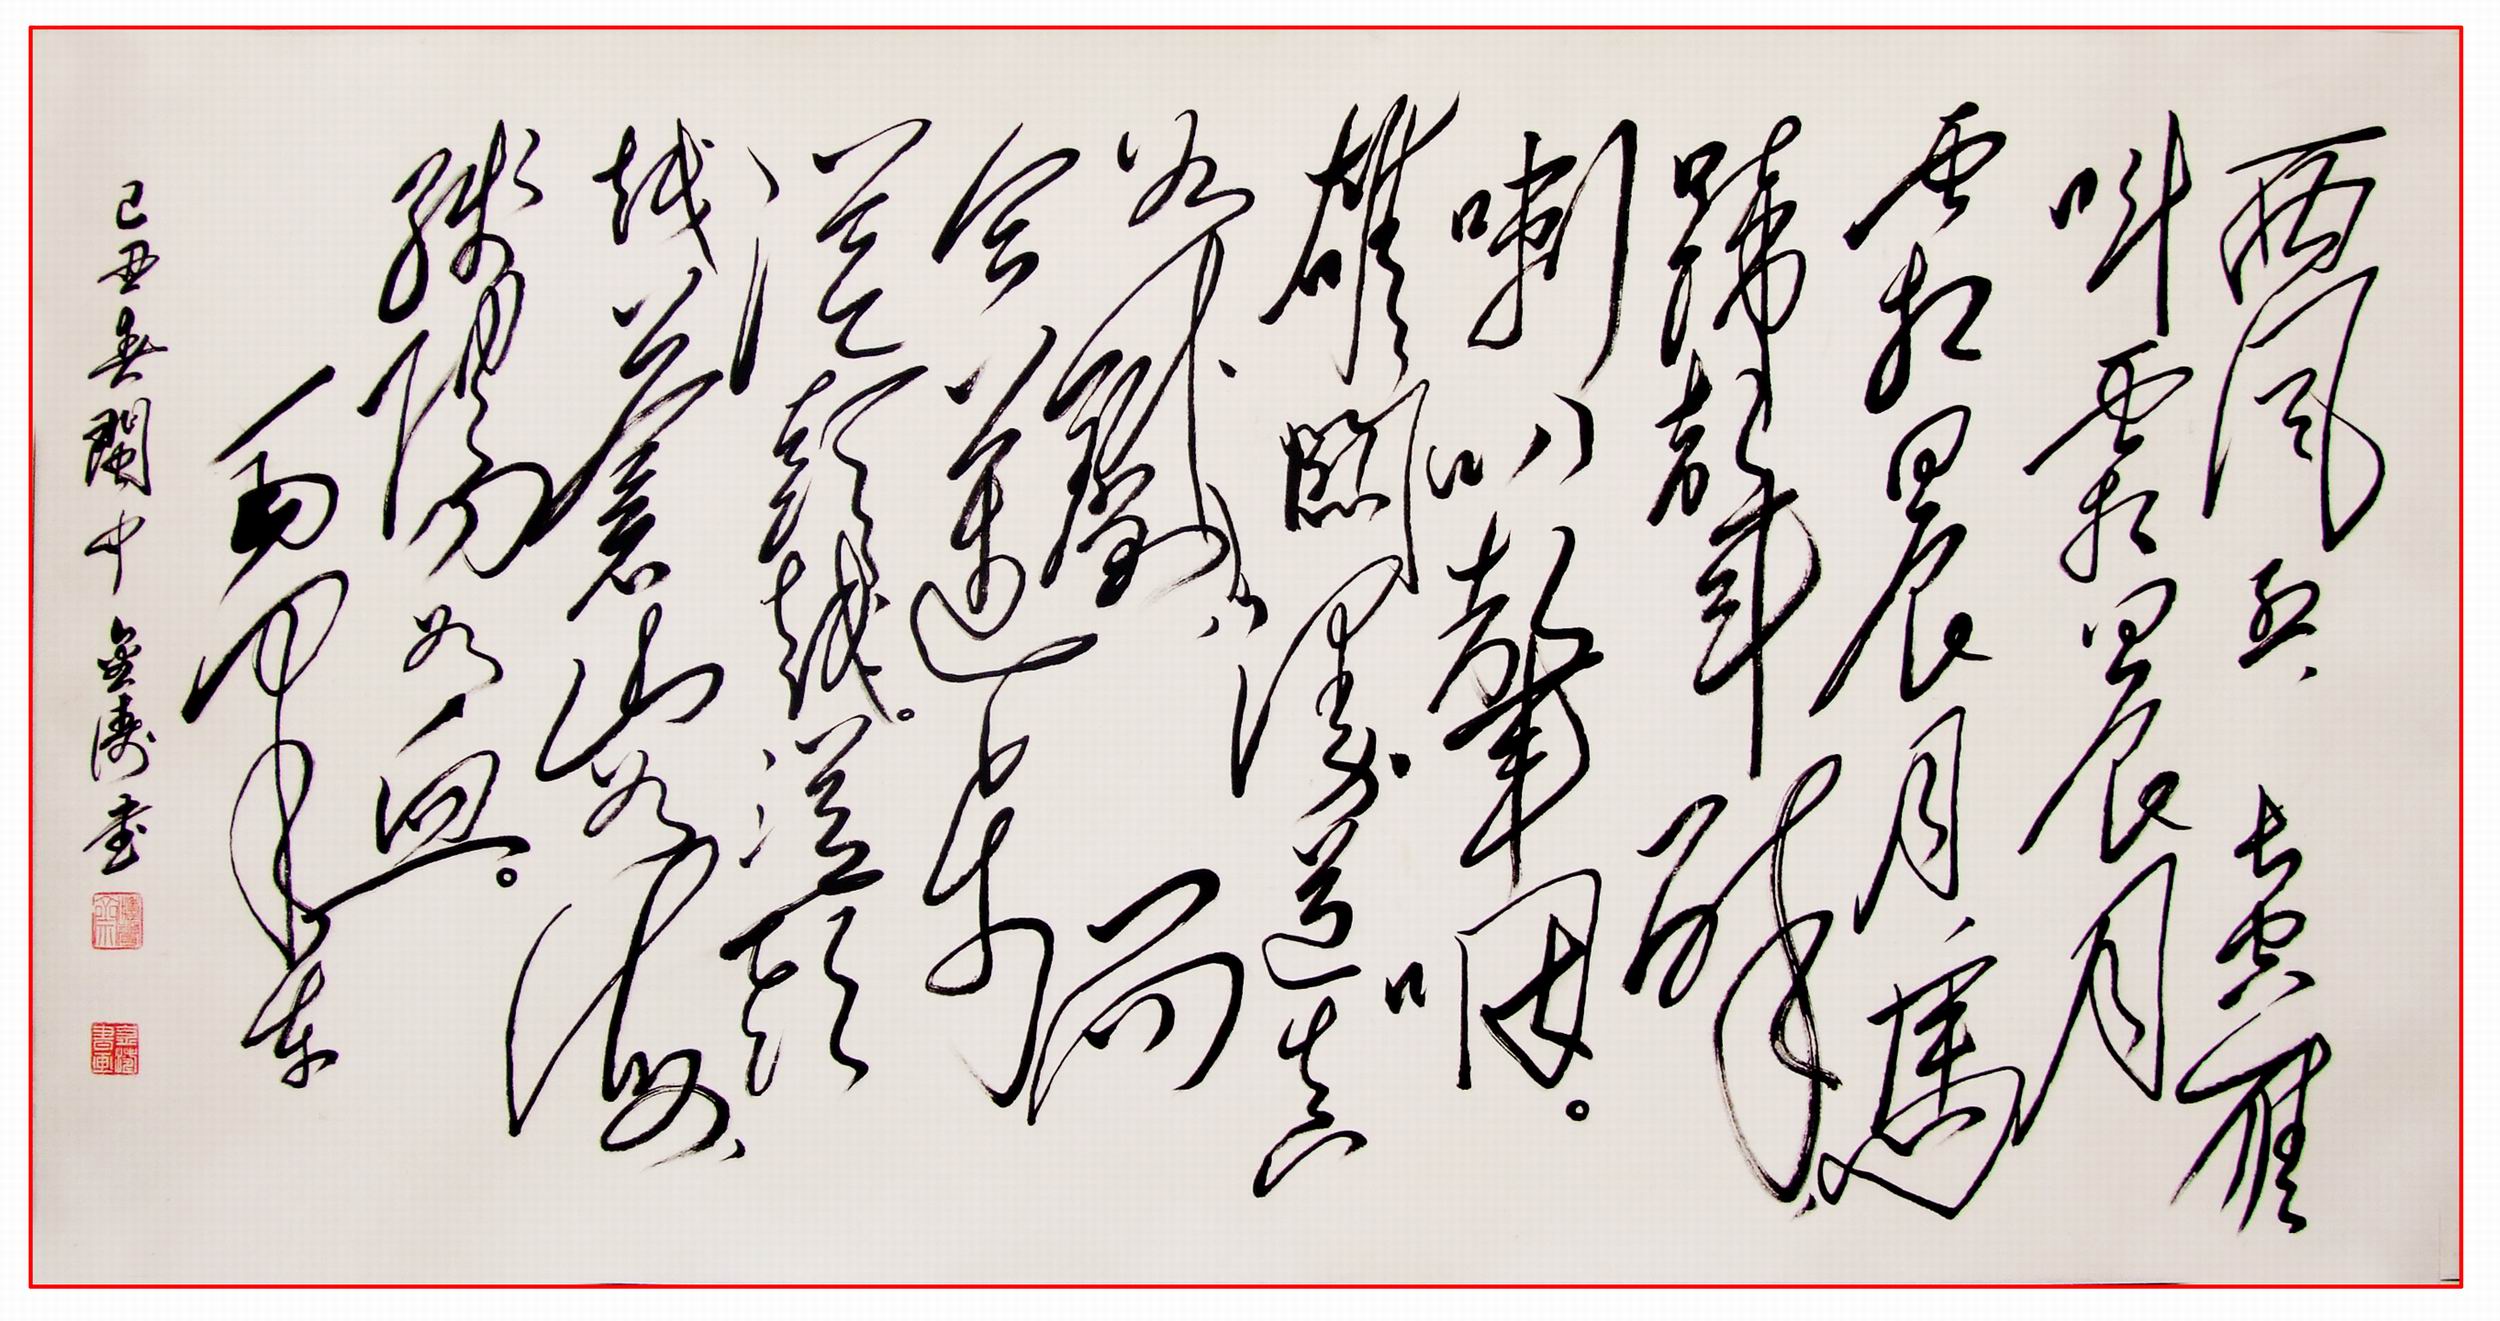 西風烈,長空雁
叫霜晨月
霜晨月,馬
蹄聲碎,
喇叭聲咽。
雄關漫道真
如鐵,而
今邁步
從頭越。從頭
越,蒼山如海,
殘陽如血。
毛澤東
己丑春閩中金濤書